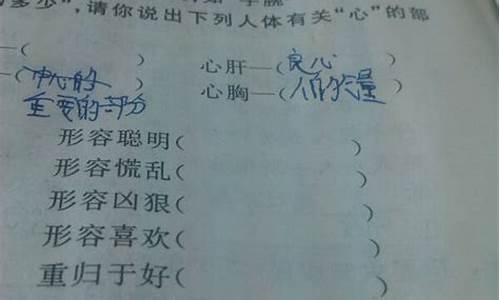 多少”,请你说出下列人体有关“心”的部
—( )
心肝—(良心)
—(中心的重要的部分)
心胸—(人的气量)
形容聪明( )
形容慌乱( )
形容凶狠( )
形容喜欢( )
重归于好( )